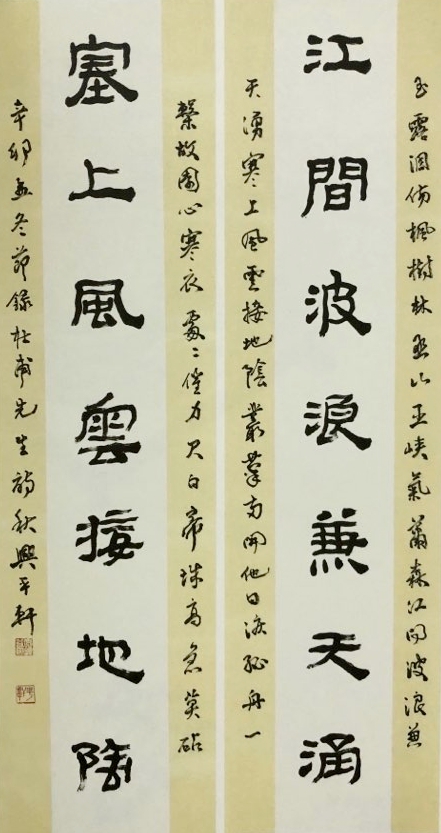 玉露凋傷楓樹林巫山巫峽氣蕭森江間波浪兼
江間波浪兼天涌
天湧塞上風雲接地陰叢菊兩開他日淚孤舟一
繫故園心寒衣處〻催刀尺白帝城高急莫砧
塞上風雲接地陰
辛卯孟冬節錄杜甫先生詩秋興平軒